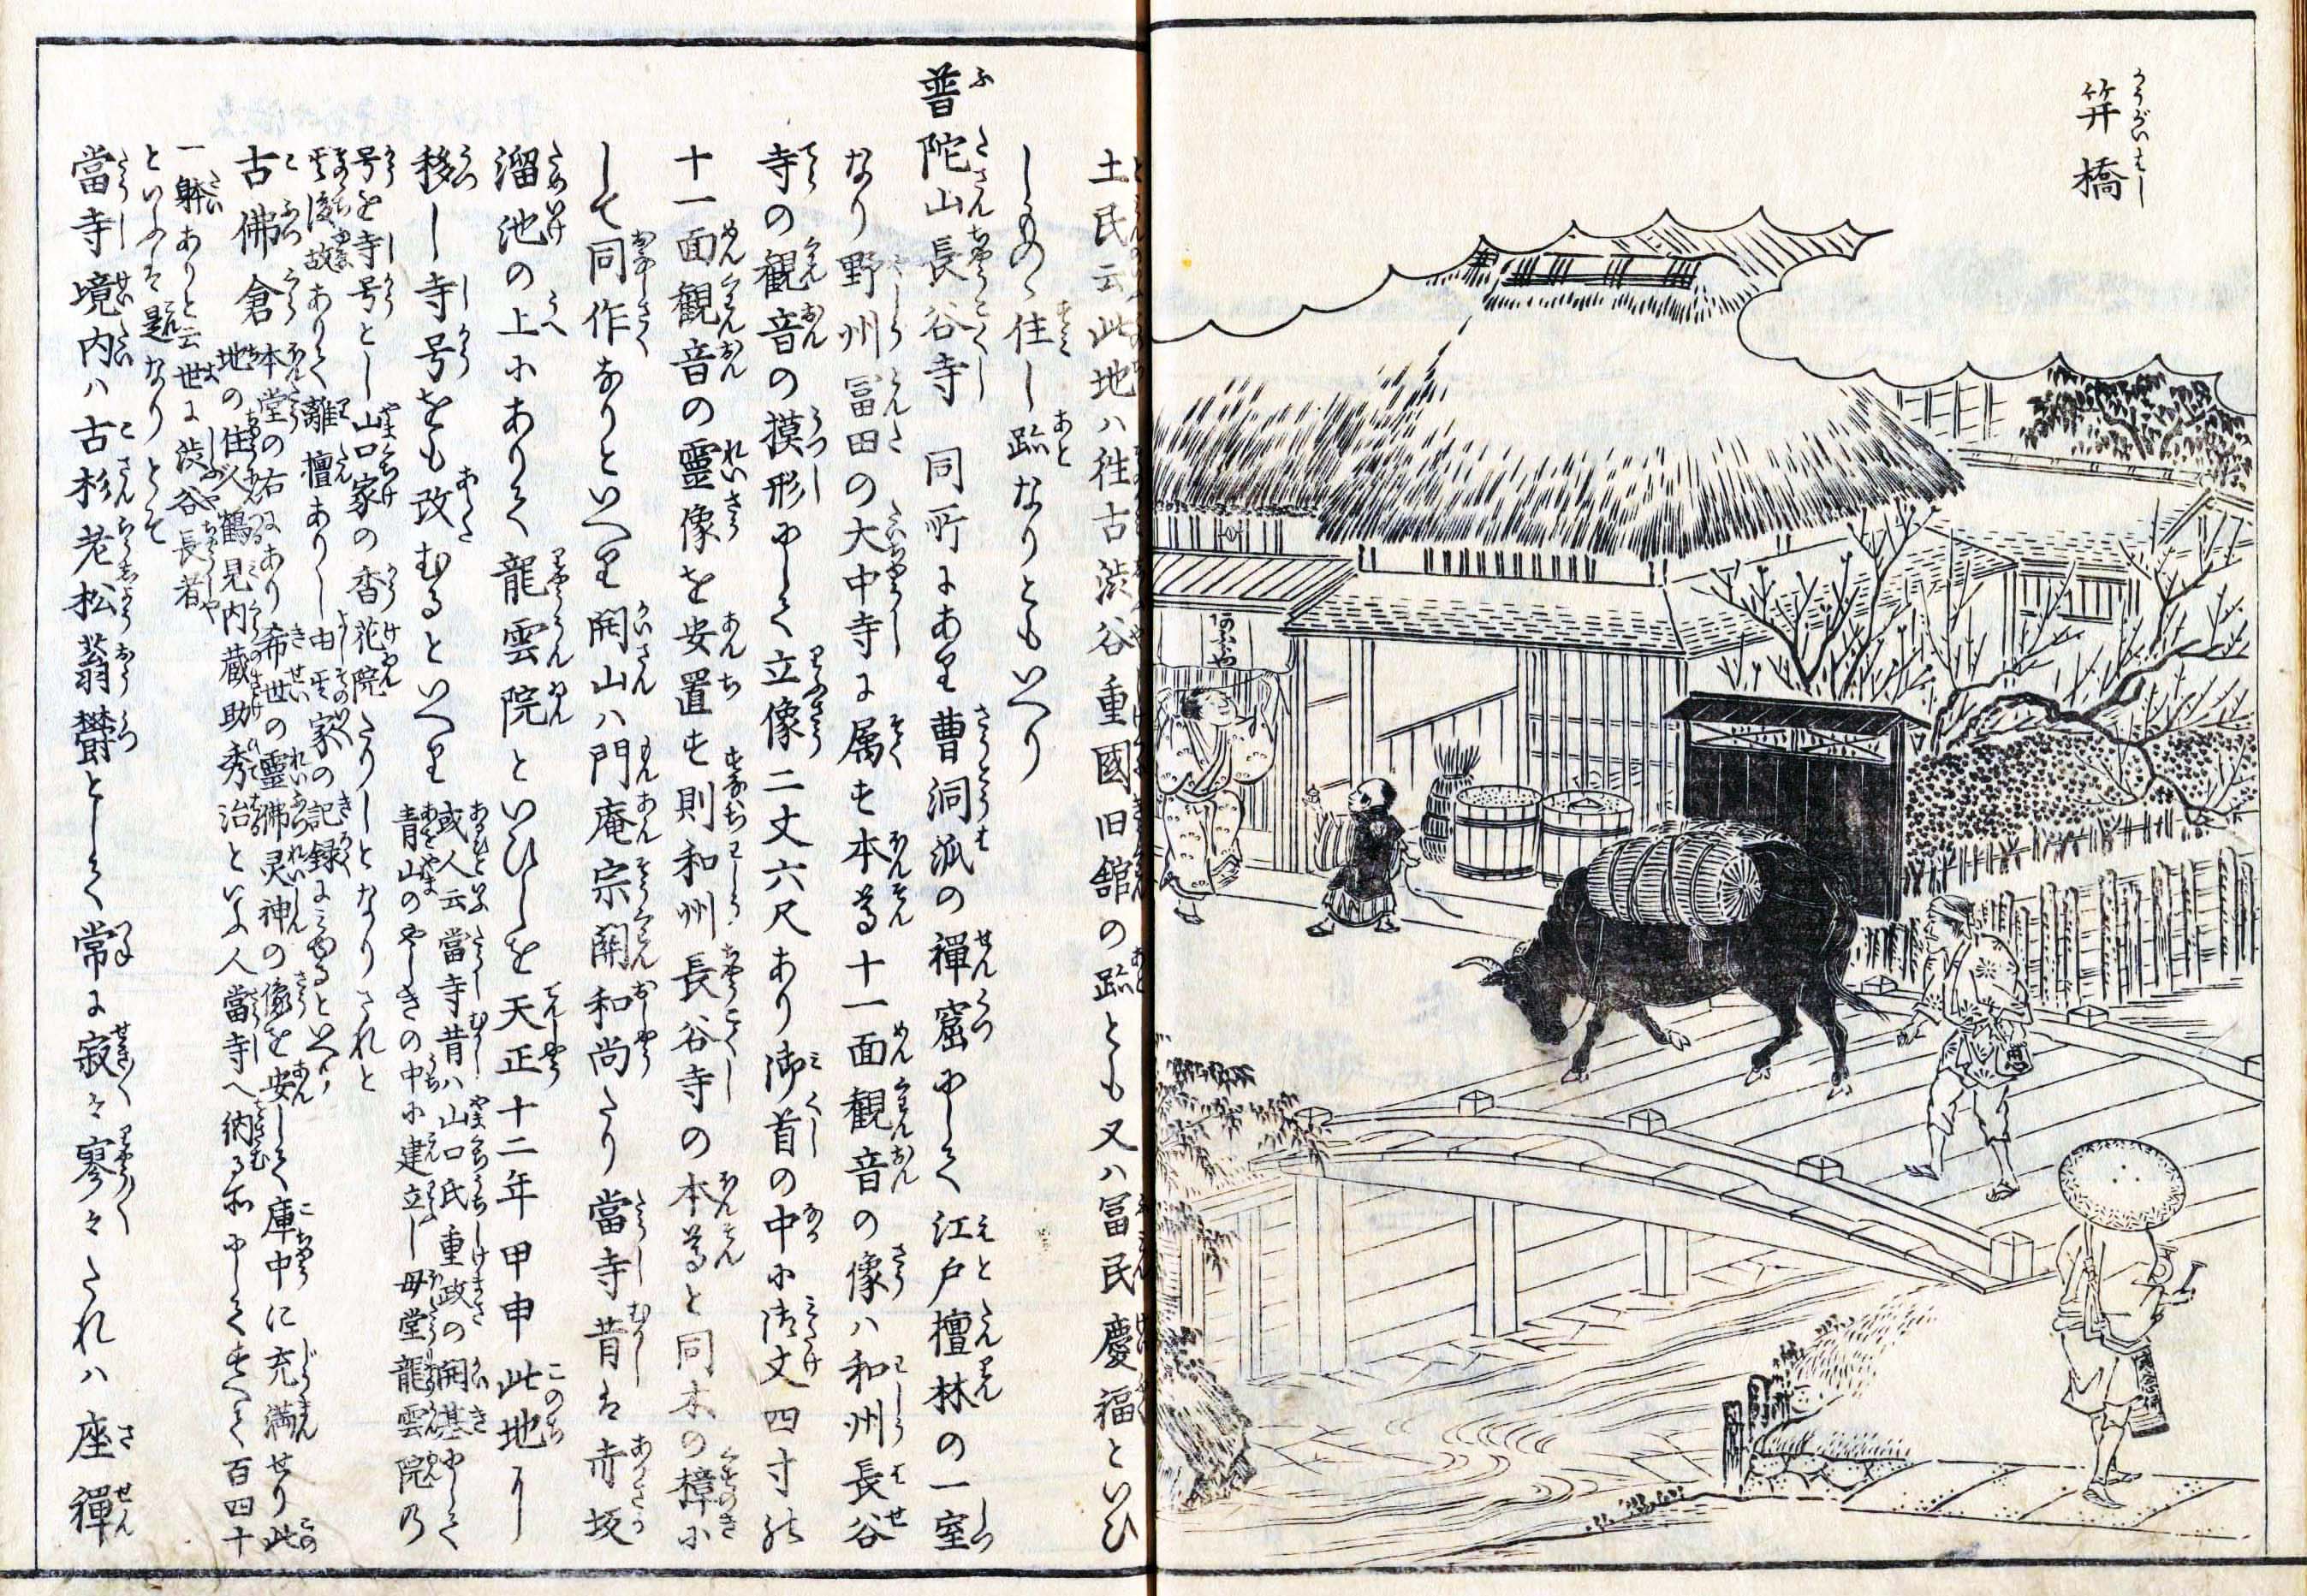 笄橋
かうがいはし
あふみや
土民云此地ハ往古渋谷重國旧舘の跡とも又ハ冨民慶福といひ
しものゝ住し跡なりともいへり
普陀山長谷寺 同所にあり曹洞派の禅窟にして江戸檀林の一室
なり野州冨田の大中寺に属す本尊十一面観音の像ハ和州長谷
寺の観音の摸形にして立像二丈六尺あり御首の中に御丈四寸の
十一面観音の霊像を安置す則和州長谷寺の本尊と同木の樟に
して同作なりといへり開山ハ門庵宗關和尚たり當寺昔は赤坂
溜池の上にありて龍雲院といひしを天正十二年甲申此地に
移し寺号をも改むるといへり
或人云當寺昔ハ山口氏重政の開基にして
青山のやしきの中に建立し母堂龍雲院乃
号を寺号とし山口家の香花院たりしとなりされと
其後故ありて離檀ありし由其家の記録にみゆるといへり
古佛倉
本堂の右にあり希世の霊佛灵神の像を安して庫中に充満せり此
地の住人鶴見内蔵助秀治といふ人當寺へ納る所にしてすへて百四十
一躰ありと云世に渋谷長者
といふは是なりとそ
當寺境内ハ古杉老松蓊欝として常に寂々寥々たれハ座禅